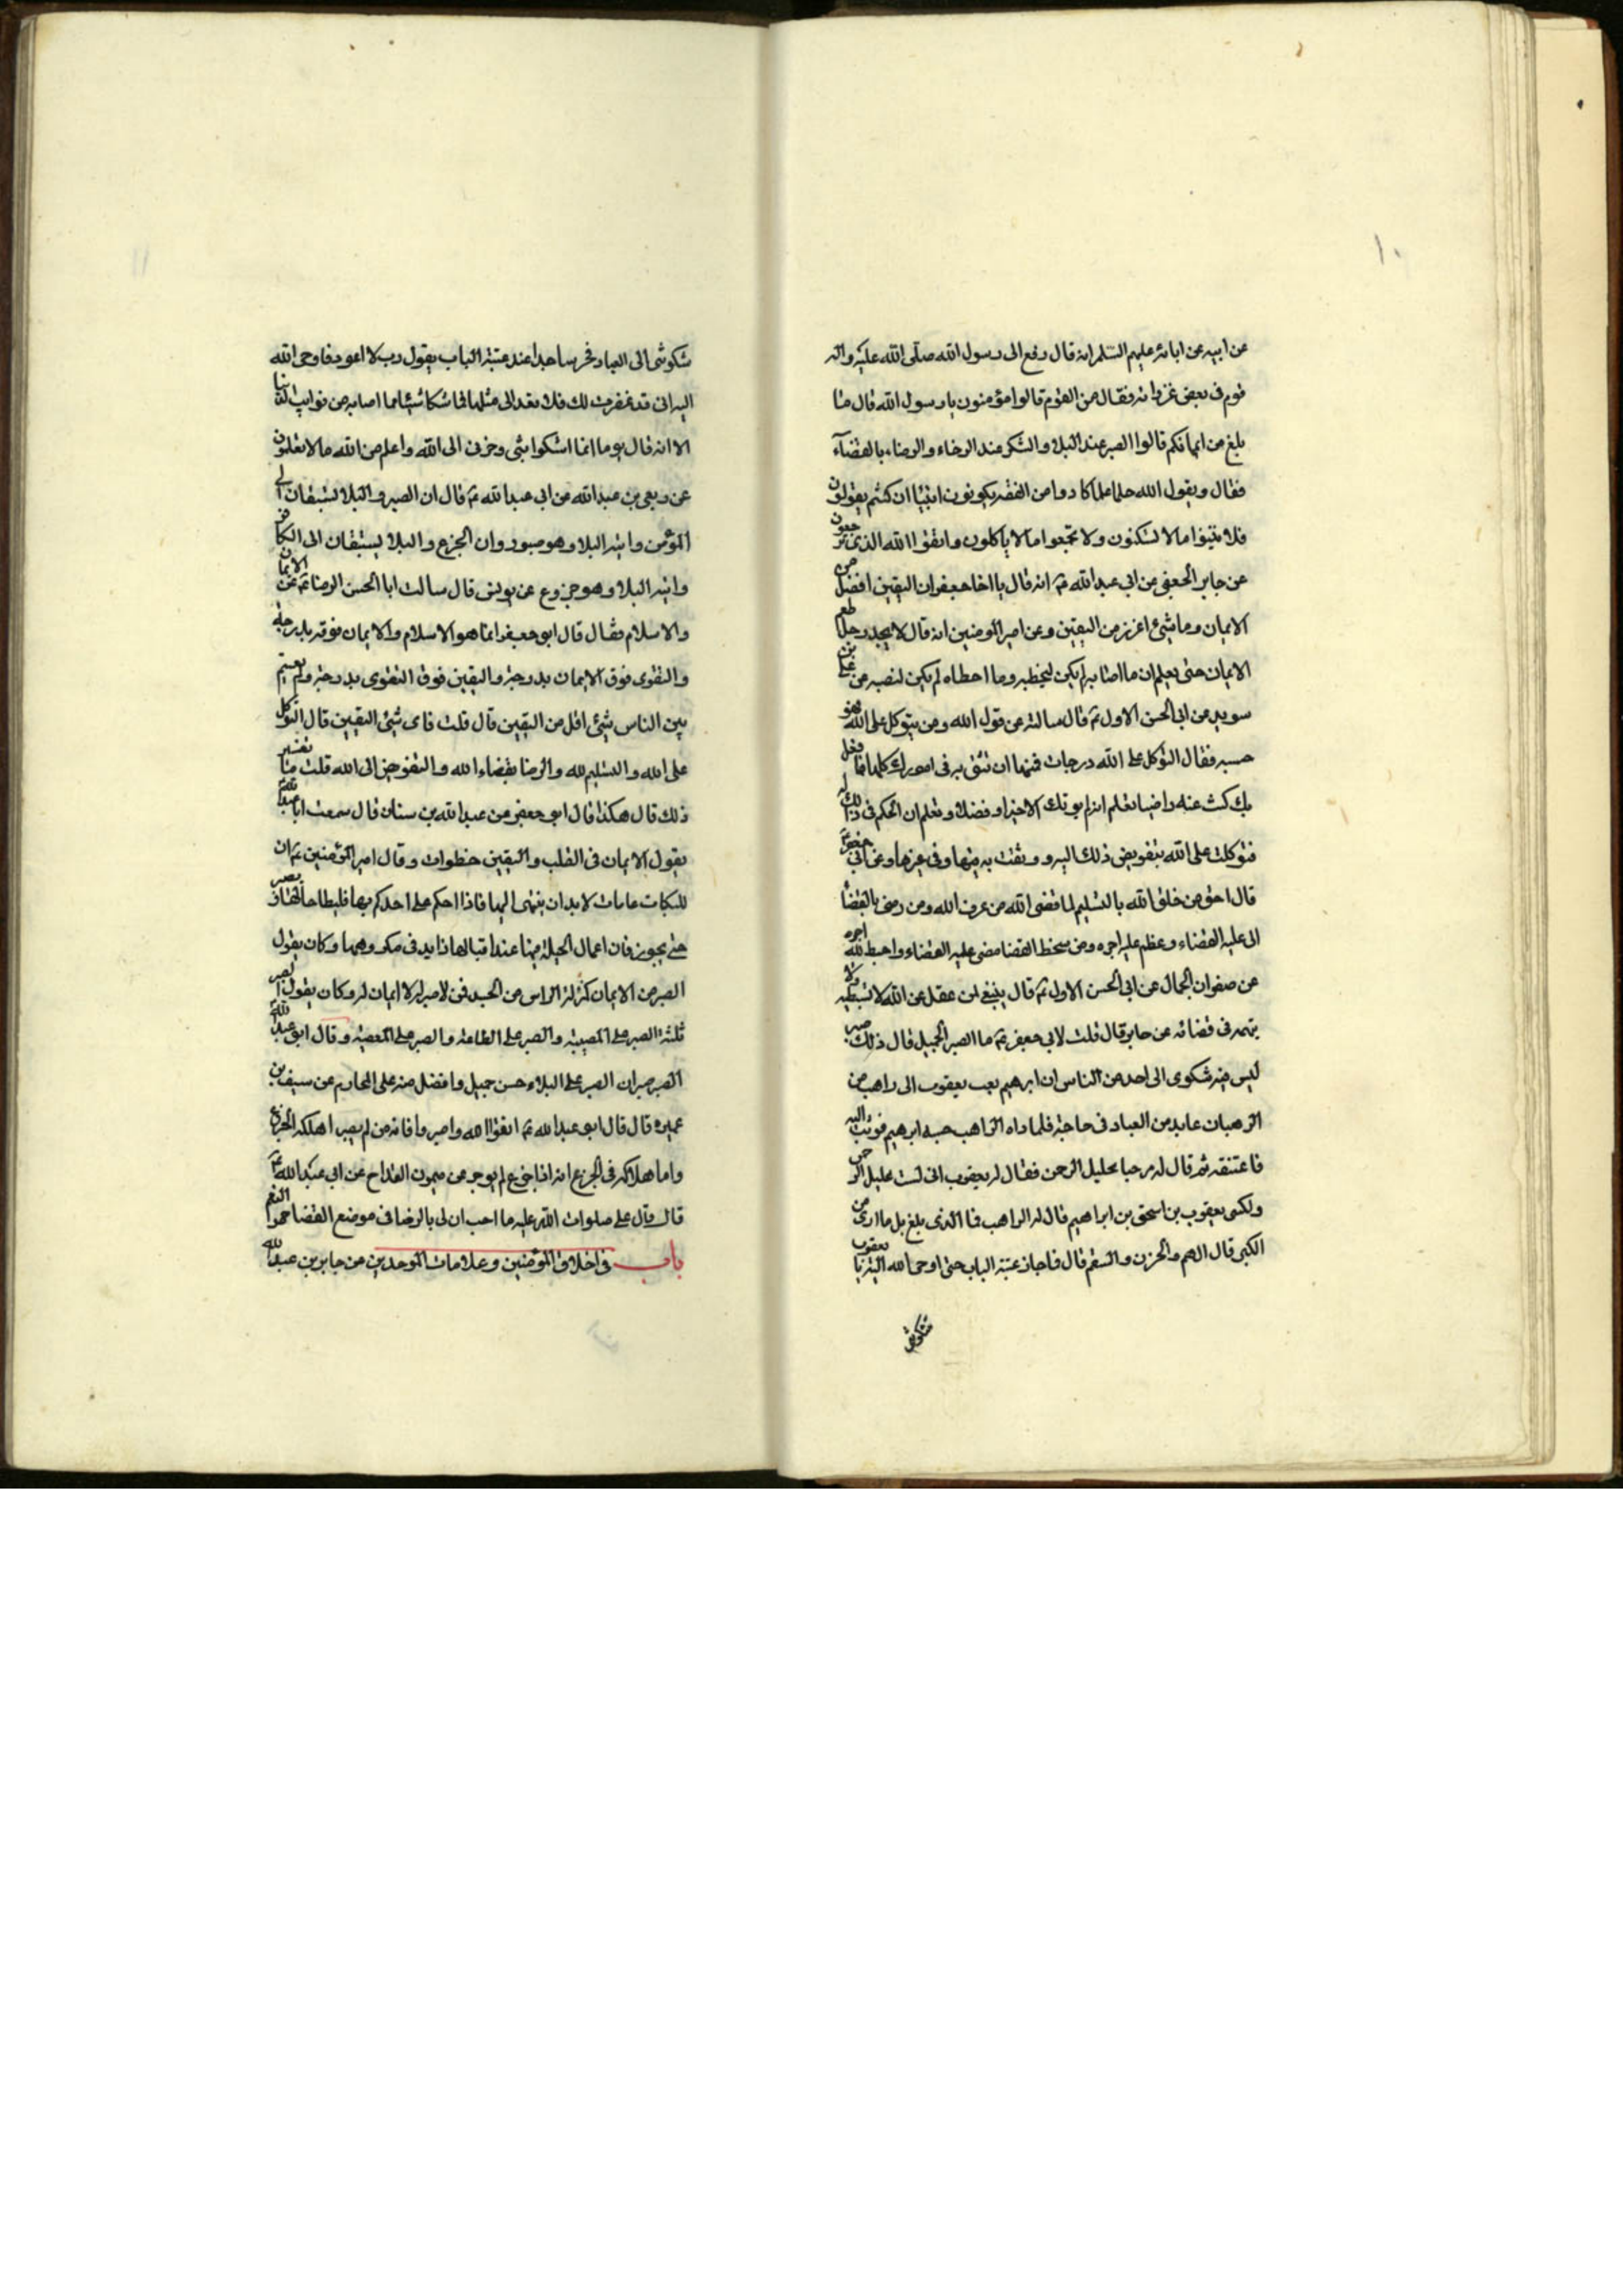 ١٠
عن ابيه عن ابائه عليهم السلام انه قال رفع الى رسول الله صلى الله عليه واله
قوم في بعض غزواته فقال من القوم قالوا مؤمنون يا رسول الله قال ما
بلغ من ايمانكم قالوا الصبر عند البلاء والشكر عند الرخاء والرضاء بالقضاء
فقال ويقول الله حلما علما كادوا من الفقه يكونون انبياء ان كنتم يقولون
فلا تبنوا ما لا تسكنون ولا تجمعوا ما لا ياكلون واتقوا الله الذى ترجعون
عن جابر الجعفى عن ابي عبد الله ع انه قال يا اخا جعف ان اليقين افضل من
الايمان وما شئ اعزز من اليقين وعن امير المؤمنين انه قال لا يجد رجل طعم
الايمان حتى يعلم ان ما اصابه لم يكن ليخطيه وما اخطاه لم يكن لتصيبه عن على بن
سويد عن ابي الحسن الاول ع قال سالته عن قول الله ومن يتوكل على الله فهو
حسبه فقال التوكل على الله درجات فمنها ان تثق به في امورك كلها فما فعل
بك كنت عنه راضيا تعلم انه لم يوتك الا خيرا وفضلا وتعلم ان الحكم في ذلك له
فتوكلت على الله بتفويض ذلك اليه ووثقت به فيها وفي غيرها وعن ابي جعفر ع
قال احق من خلق الله بالتسليم لما قضى الله من عرف الله ومن رضى بالقضا
اتى عليه القضاء وعظم عليه اجره ومن سخط القضا مضى عليه القضاء واحبط الله اجره
عن صفوان الجمال عن ابي الحسن الاول ع قال ينبغي لمن عقل عن الله لا تستبطيه ولا
يتهمه في قضائه عن جابر قال قلت لابي جعفر ع ما الصبر الجميل قال ذلك صبر
ليس فيه شكوى الى احد من الناس ان ابرهيم بعث يعقوب الى راهب من
الرهبان عابد من العباد في حاجة فلما راه الراهب حسبه ابرهيم فوثب اليه
فاعتنقه ثم قال له مرحبا بخليل الرحمن فقال له يعقوب انى لست بخليل الرحمن
ولكنى يعقوب بن اسحق بن ابراهيم قال له الراهب فما الذى بلغ بك ما ارى من
الكبر قال الهم والحزن والسقم قال فما جاز عتبة الباب حتى اوحى الله اليه يا يعقوب
شكوتنى
١١
شكوتنى الى العباد فخر ساجدا عند عتبة الباب يقول رب لا اعود فاوحى الله
اليه انى قد غفرت لك فلا تعد الى مثلها فما شكا شيئا مما اصابه من نوايب الدنيا
الا انه قال يوما انما اشكوا بثى وحزنى الى الله واعلم من الله ما لا تعلمون
عن ربعى بن عبد الله عن ابي عبد الله ع قال ان الصبر والبلا يستبقان الى
المؤمن وياتيه البلا وهو صبور وان الجزع والبلا يستبقان الى الكافر
وياتيه البلا وهو جزوع عن يونس قال سالت ابا الحسن الرضا ع عن الايمان
والاسلام فقال قال ابو جعفر انما هو الاسلام والايمان فوقه بدرجة
والتقوى فوق الايمان بدرجة واليقين فوق التقوى بدرجة ولم يقسم
بين الناس شئ اقل من اليقين قال قلت فاى شئ اليقين قال التوكل
على الله والتسليم لله والرضا بقضاء الله والتفويض الى الله قلت ما تفسير
ذلك قال هكذا قال ابو جعفر عن عبد الله بن سنان قال سمعت ابا عبد الله
يقول الايمان في القلب واليقين خطوات وقال امير المؤمنين ع ان
للنكبات غايات لا بد ان ينتهى اليها فاذا احكم على احدكم بها فليطاطا لها ويصبر
حتى يجوز فان اعمال الحيلة فيها عند اقبالها زايد في مكروهها وكان يقول
الصبر من الايمان كمنزلة الراس من الجسد فمن لا صبر له لا ايمان له وكان يقول الصبر
ثلثة الصبر على المصيبة والصبر على الطاعة والصبر على المعصية وقال ابو عبد الله
الصبر صبران الصبر على البلاء حسن جميل وافضل منه على المحارم عن سيف بن
عميره قال قال ابو عبد الله ع اتقوا الله واصبروا فانه من لم يصبر اهلكه الجزع
واما هلاكه في الجزع انه اذا جزع لم يوجر عن ميمون القداح عن ابي عبد الله ع
قال قال على صلوات الله عليه ما احب ان لى بالرضا في موضع القضا حمر النعم
باب في اخلاق المؤمنين وعلامات الموحدين عن جابر بن عبد الله